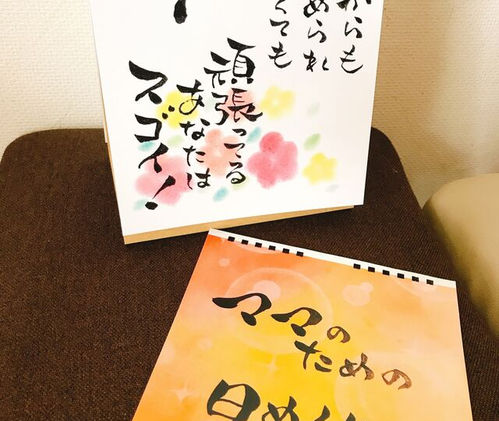 からも
められ
くても
頑張ってる
あなたは
スゴイ!
ママの
ための
日めくり